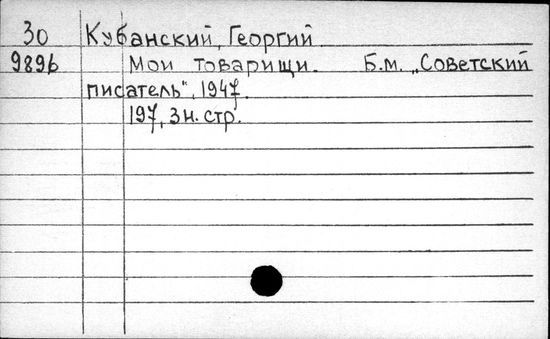 30 Кубанский, Георгий
9896 Мои товарищи. Б.м. „Советский
писатель", 1947.
197, 3 н. стр.